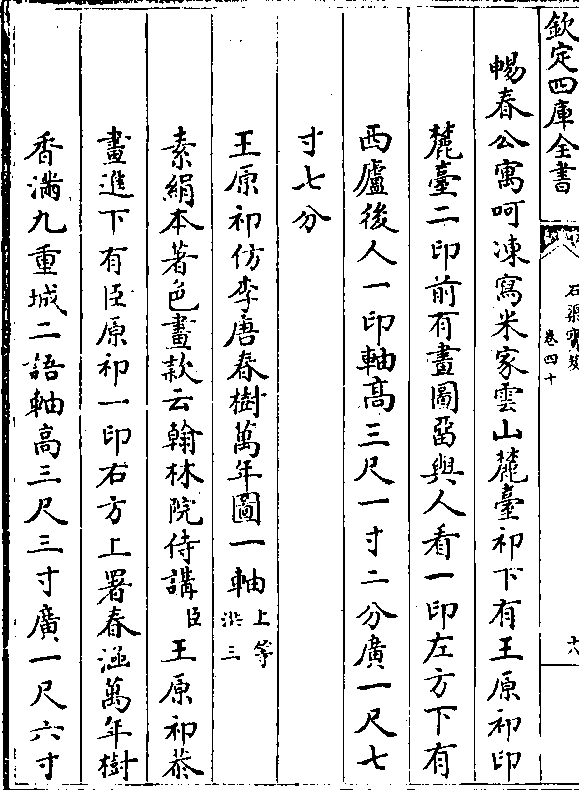 欽定四庫全書
石渠寶笈
卷四十
十八
暢春公寓呵凍寫米家雲山麓臺祁下有王原祁印
麓臺二印前有畫圖畱與人看一印左方下有
西廬後人一印軸高三尺一寸二分廣一尺七
寸七分
王原祁仿李唐春樹萬年圖一軸 上等 洪三
素絹本著色畫款云翰林院侍講臣王原祁恭
畫進下有臣原祁一印右方上署春涵萬年樹
香滿九重城二語軸高三尺三寸廣一尺六寸